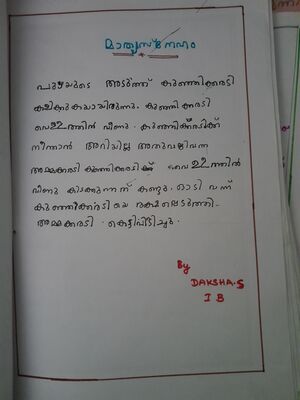 മാതൃസ്നേഹം
പുഴയുടെ അടുത്ത് കുഞ്ഞിക്കരടി
കളിക്കുകയായിരുന്നു. കുഞ്ഞിക്കരടി
വെള്ളത്തിൽ വീണു. കുഞ്ഞിക്കരടിക്ക്
നീന്താൻ അറിയില്ല അതുവഴിവന്ന
അമ്മക്കരടി കുഞ്ഞിക്കരടിക്ക് വെള്ളത്തിൽ
വീണു കിടക്കുന്നത് കണ്ടു. ഓടി വന്ന്
കുഞ്ഞിക്കരടിയെ രക്ഷപ്പെടുത്തി.
അമ്മക്കരടി കെട്ടിപിടിച്ചു.
By
DAKSHA.S
I B